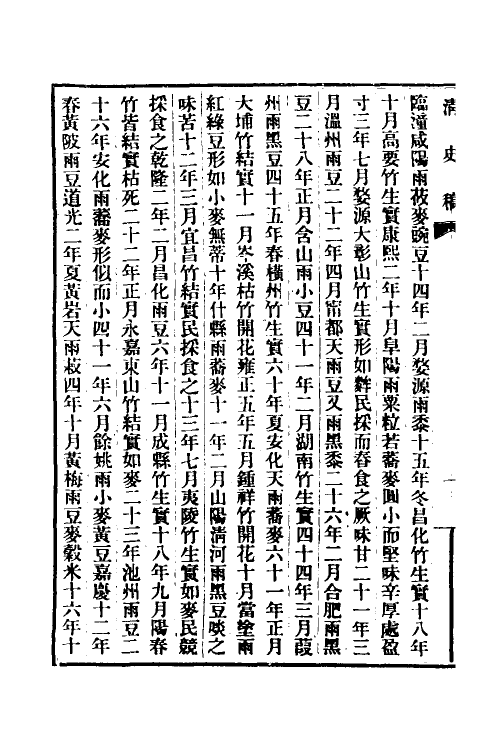 清史稿
臨潼咸陽雨莜麥豌豆十四年二月婺源雨黍十五年冬昌化竹生實十八年
十月高要竹生實康熙二年十月阜陽雨粟粒若蕎麥圓小而堅味辛厚處盈
寸三年七月婺源大彰山竹生實形如麰民採而舂食之厥味甘二十一年三
月溫州雨豆二十二年四月甯都天雨豆又雨黑黍二十六年二月合肥雨黑
豆二十八年正月含山雨小豆四十一年二月湖南竹生實四十四年三月葭
州雨黑豆四十五年春橫州竹生實六十年夏安化天雨蕎麥六十一年正月
大埔竹結實十一月岑溪枯竹開花雍正五年五月鍾祥竹開花十月當塗雨
紅綠豆形如小麥無蒂十年什縣雨蕎麥十一年二月山陽清河雨黑豆啖之
味苦十二年三月宜昌竹結實民採食之十三年七月夷陵竹生實如麥民競
採食之乾隆二年二月昌化雨豆六年十一月成縣竹生實十八年九月陽春
竹皆結實枯死二十二年正月永嘉東山竹結實如麥二十三年池州雨豆二
十六年安化雨蕎麥形似而小四十一年六月餘姚雨小麥黃豆嘉慶十二年
春黃陂雨豆道光二年夏黃岩天雨菽四年十月黃梅雨豆麥穀米十六年十